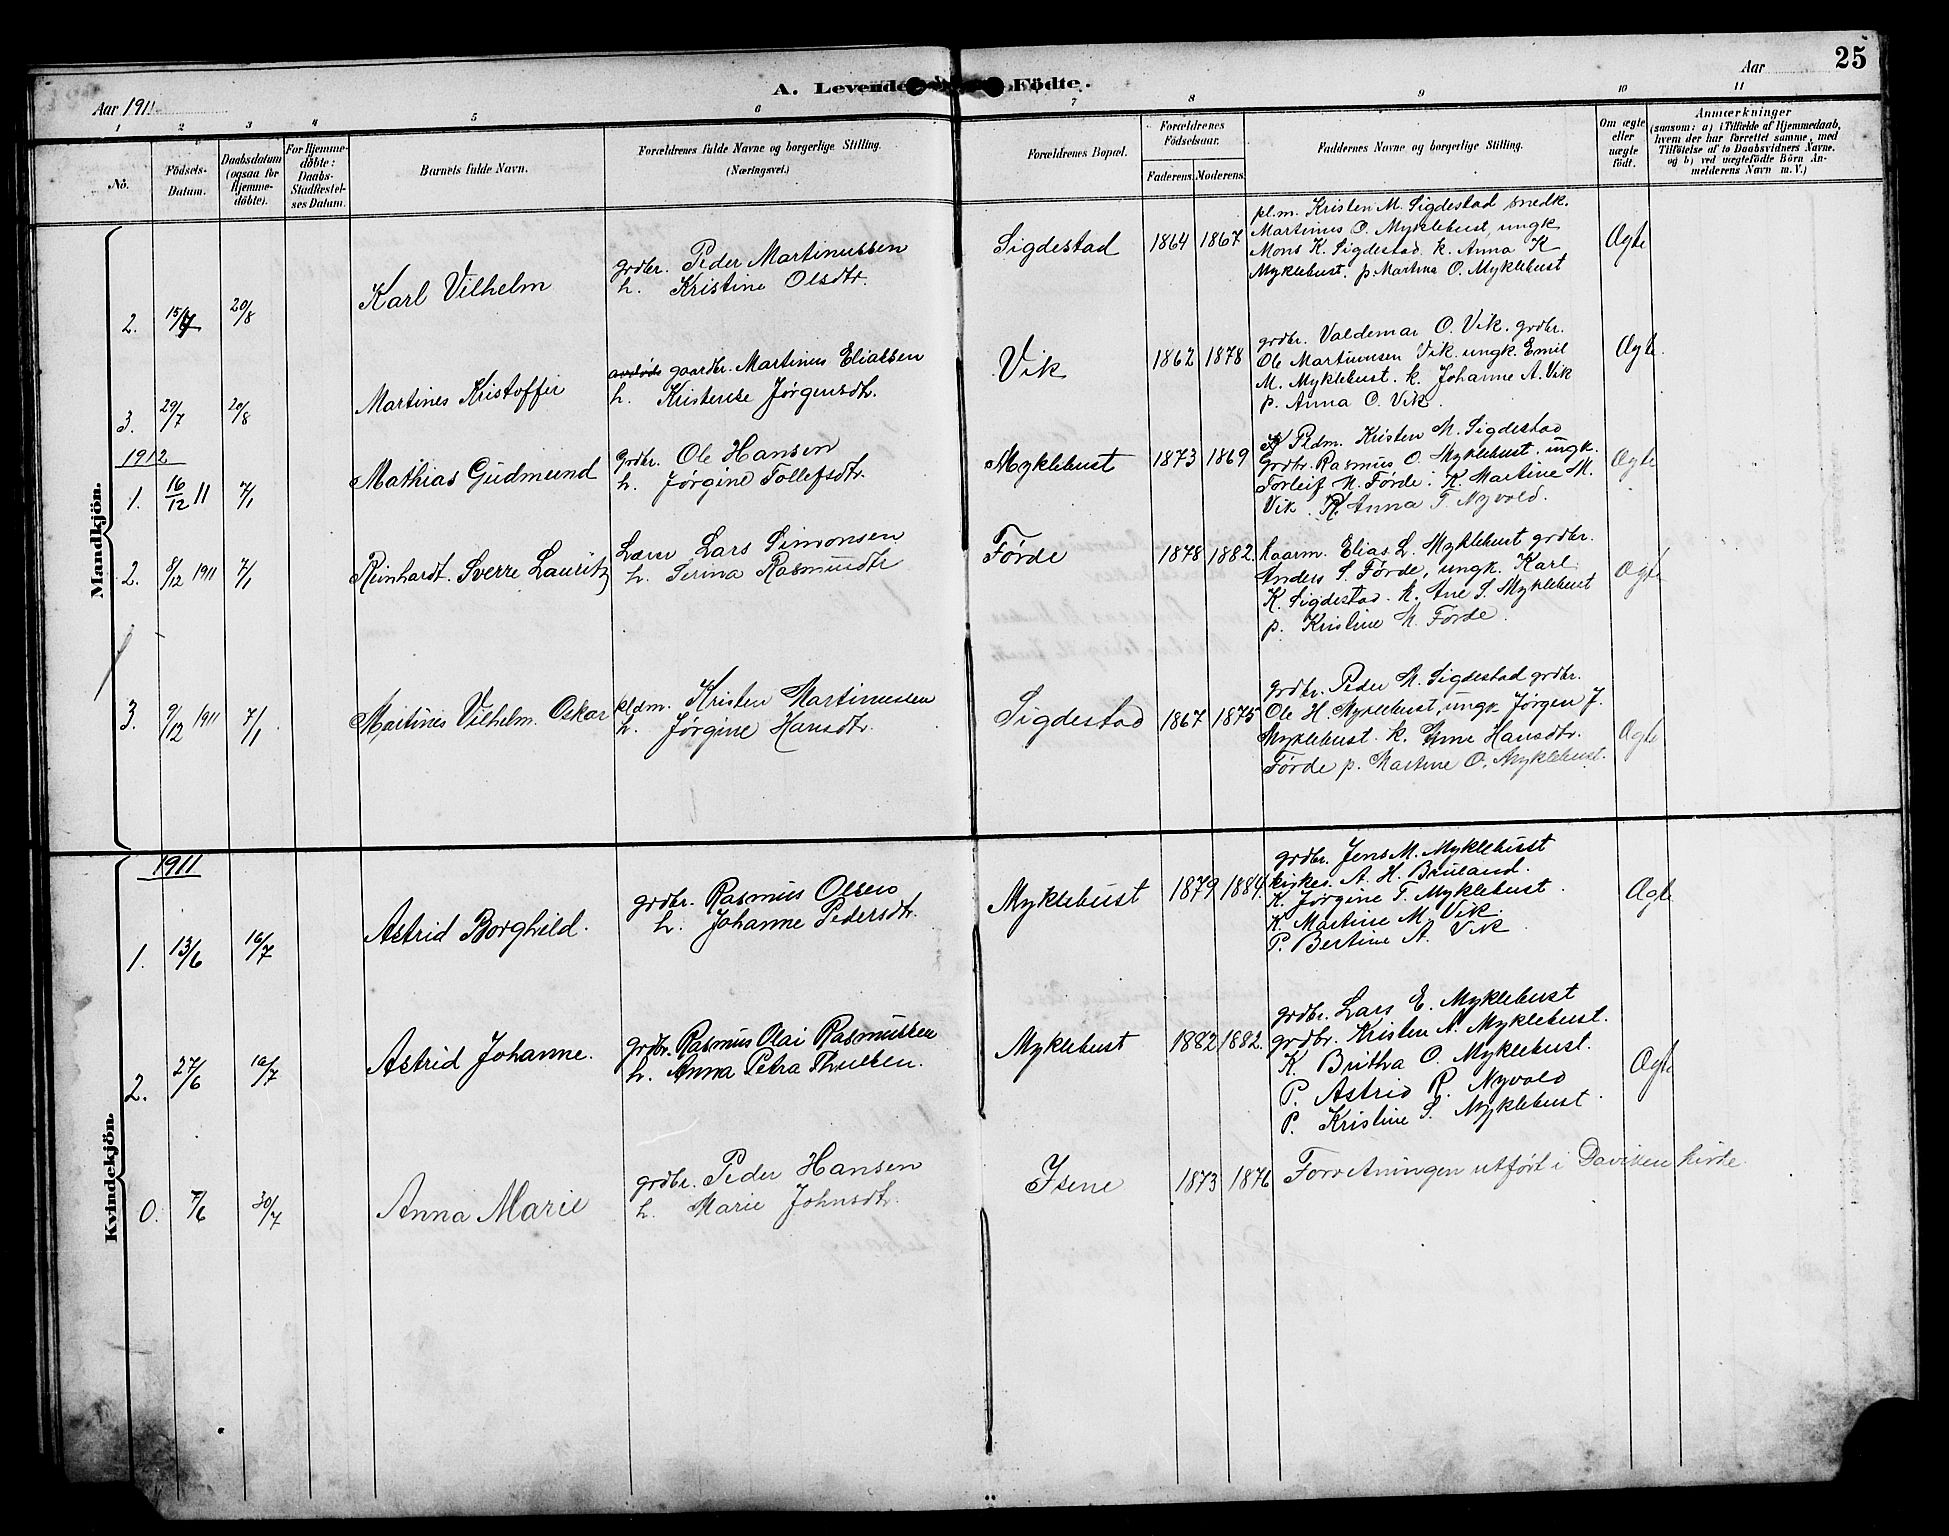 25
A. Levende Födte.
Aar 1911
Aar
1 2 3 4 5 6 7 8 9 10 11
No.
Födsels-Datum.
Daabsdatum (ogsaa for Hjemme-döbte).
For Hjemme-döbte: Daabs-Stadfæstel-ses Datum.
Barnets fulde Navn.
Forældrenes fulde Navne og borgerlige Stilling. (Næringsvei.)
Forældrenes Bopæl.
Forældrenes Födselsaar.
Faderens. Moderens.
Faddernes Navne og borgerlige Stilling.
Om ægte eller uægte födt.
Anmærkninger
(saasom: a) i Tilfælde af Hjemmedaab,
hvem der har forrettet samme, med
Tilföielse af to Daabsvidners Navne.
og b) ved uægtefödte Börn An-
melderens Navn m. V.)
Mandkjön.
2. 15/7 20/8 Karl Vilhelm
grdbr. Peder Martinussen
h. Kristine Olsdtr.
Sigdestad 1864 1867
pl.m. Kristen M. Sigdestad snedk.
Martinus O. Myklebust, ungk
Mons K. Sigdestad k. Anna K
Myklebust. p. Martina O. Myklebust
Ægte
3. 29/7 20/8 Martines Kristoffer
avdøde gaardbr. Martinus Eliassen
h. Kristense Jørgensdtr.
Vik 1862 1878
grdbr. Valdemar O. Vik. grdbr.
Ole Martinusen Vik. ungk. Emil
M. Myklebust. k. Johanne A. Vik
p. Anna O. Vik.
Ægte
1912
1. 16/12 11 7/1 Mathias Gudmund
Grdbr. Ole Hansen
h. Jørgine Tollefsdtr.
Myklebust 1873 1869
Pldm. Kristen M. Sigdestad
Grdbr. Rasmus O. Myklebust. ungk.
Torleif M. Førde. K. Martine M.
Vik. K. Anna T. Nyvold.
Ægte
2. 9/12 1911 7/1 Reinhardt. Sverre Lauritz
Lærer Lars Simonsen
h. Serina Rasmusdtr
Førde 1878 1882.
kaarm. Elias L. Myklebust grdbr.
Anders S. Førde, ungk. Karl
K. Sigdestad. k. Ane S. Myklebust
p. Kristine M. Førde.
Ægte
3. 9/12 1911 7/1. Martines Vilhelm. Oskar
pldm. Kristen Martinussen
h. Jørgine Hansdtr.
Sigdestad 1867 1875
grdbr. Peder M. Sigdestad grdbr.
Ole H. Myklebust, ungk Jørgen J.
Myklebust. k. Ane Hansdtr.
Førde p. Martine O. Myklebust.
Ægte
Kvindekjön.
1911
1. 13/6 16/7 Astrid Borghild.
grdbr. Rasmus Olsen
h. Johanne Pedersdtr.
Myklebust 1879 1884.
grdbr. Jens M. Myklebust
kirkes. A. H. Bruland.
K. Jørgine T. Myklebust.
K. Martine M. Vik.
P. Bertine A. Vik
Ægte
2. 27/6 16/7 Astrid Johanne.
grdbr. Rasmus Olai Rasmussen
h. Anna Petra Thulsen.
Myklebust 1882 1882.
grdbr. Lars E. Myklebust
grdbr. Kristen A. Myklebust.
K. Britha O. Myklebust.
P. Astrid R. Nyvold
P. Kristine S. Myklebust.
Ægte
0. 7/6 30/7 Anna Marie
grdbr. Peder Hansen
h. Marie Johnsdtr.
Isene 1873 1876
Forretningen utført i Daviken kirke.